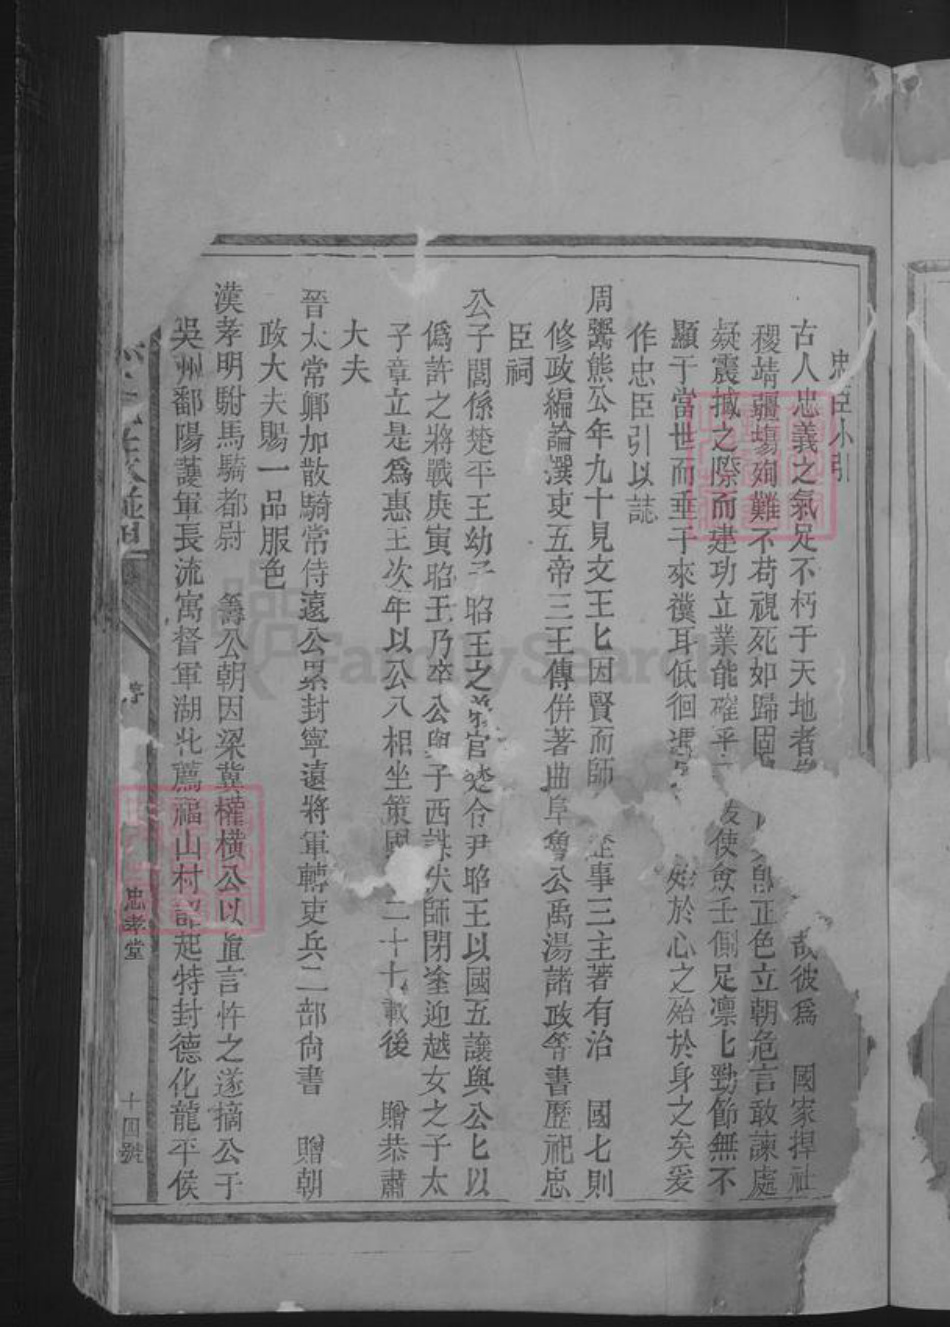 忠臣小引
古人忠義之氣足不朽于天地者 哉彼爲 國家捍社
稷靖疆塲殉難不苟視死如歸固 正色立朝危言敢諫處
疑震撼之際而建功立業能確乎 拔使僉壬側足凛匕勁節無不
顯于當世而垂于來禩耳低徊 於心之殆於身之矣爰
作忠臣引以誌
周鬻熊公年九十見文王匕因賢而師 事三主著有治 國七則
修政編論潠吏五帝三王傳併著曲阜魯公禹湯諸政等書歷祀忠
臣祠
公子閭係楚平王幼子昭王之弟官楚令尹昭王以國五讓與公匕以
僞許之將戰庚寅昭王乃卒公與子西謀伏師閉塗迎越女之子太
子章立是爲惠王次年以公八相坐策國 二十七載後 贈恭肅
大夫
晉太常卿加散騎常侍遠公累封寧遠將軍轉吏兵二部尙書 贈朝
政大夫賜一品服色
漢孝明駙馬騎都尉 籌公朝因梁冀權橫公以直言忤之遂摘公于
吳州鄱陽護軍長流寓督軍湖北薦福山村 起特封德化龍平侯
忠孝堂
十四號
FamilySearch